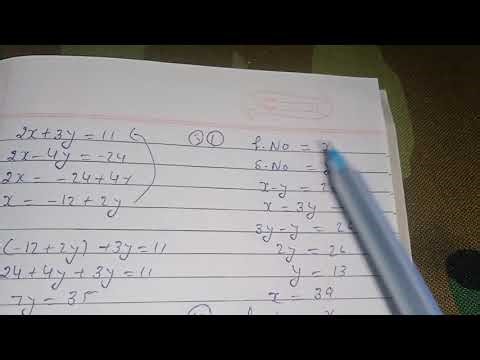 2x+3y=11
2x-4y=-24
2x = -24+4y
x = -12+2y
(-12+2y)+3y=11
24+4y+3y=11
7y=35
f.No = x
S.No =
x-y = 2
x - 3y
3y-y = 26
2y = 26
y = 13
x = 39